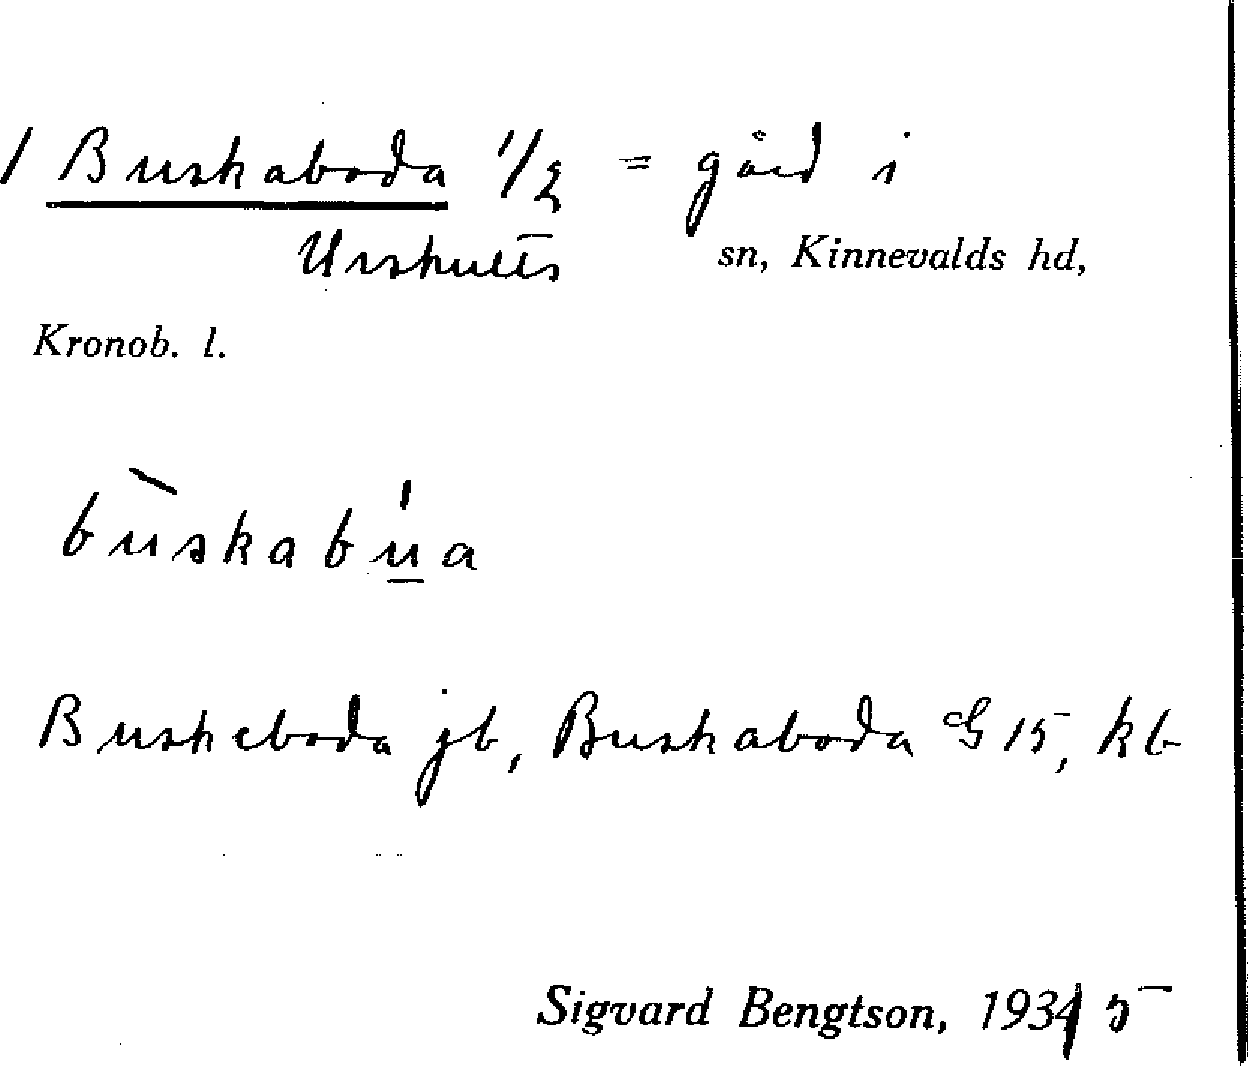 1 Buskaboda 1/2 = gård i
Urshults sn, Kinnevalds hd,
Kronob. l.
bùskabú̲a
Buskeboda jb, Buskaboda G 15, kb
Sigvard Bengtson, 1934 5